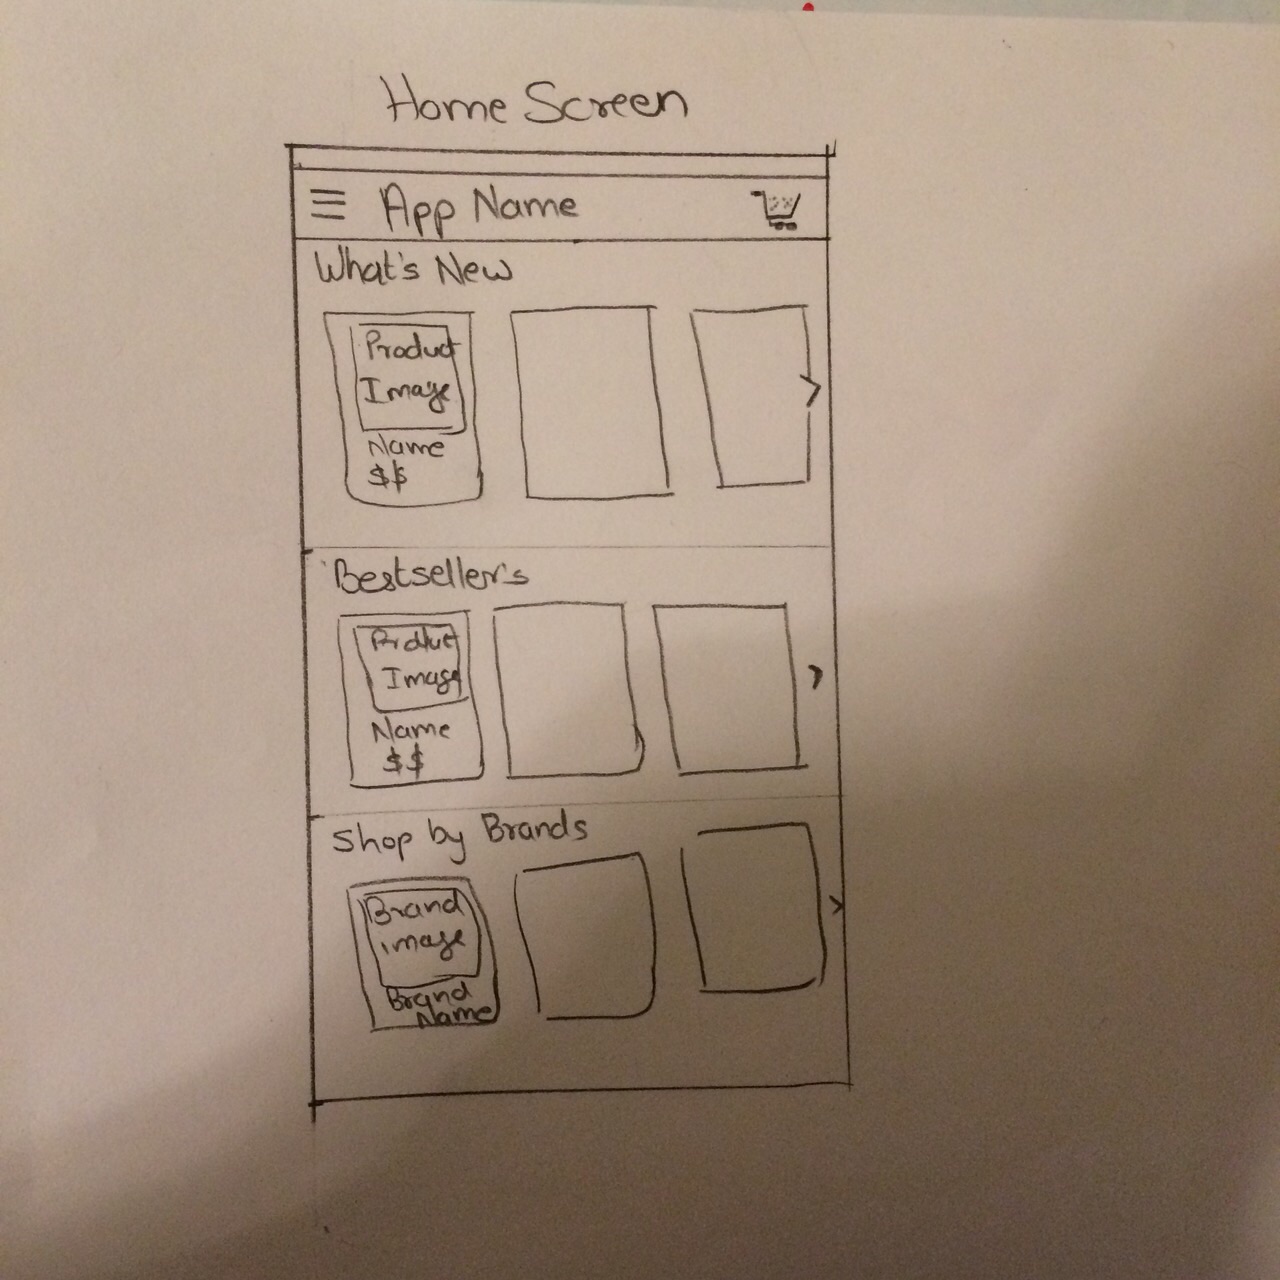 Home Screen
App Name
What's New
Product
Image
Name
$$
Bestseller's
Product
Image
Name
$$
Shop by Brands
Brand
image
Brand
Name